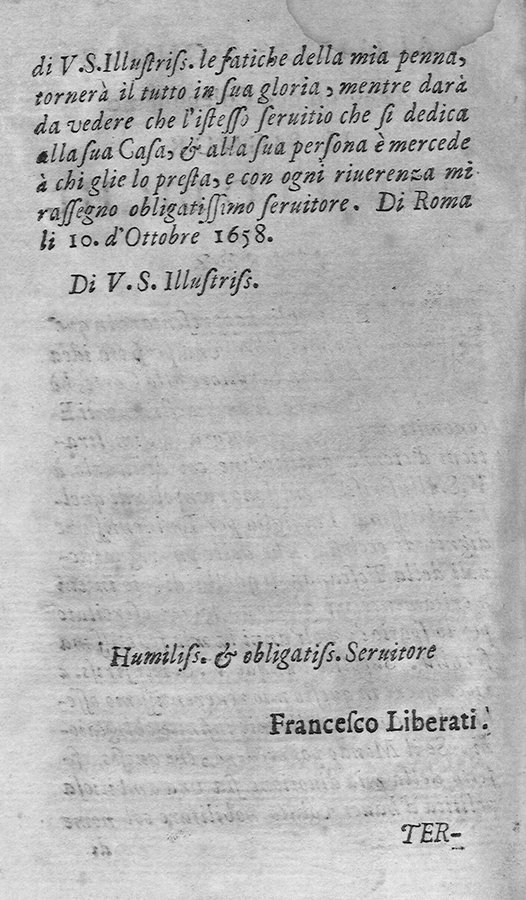 di V.S.Illuſtriſſ. le fatiche della mia penna,
tornerà il tutto in ſua gloria, mentre darà
da vedere che l'iſteſſo ſeruitio che ſi dedica
alla ſua Caſa, & alla ſua perſona è mercede
à chi glie lo preſta, e con ogni riuerenza mi
raſſegno obligatiſſimo ſeruitore. Di Roma
li 10. d'Ottobre 1658.
Di V. S. Illuſtriſſ.
Humiliſſ. & obligatiſſ. Seruitore
Franceſco Liberati.
TER-